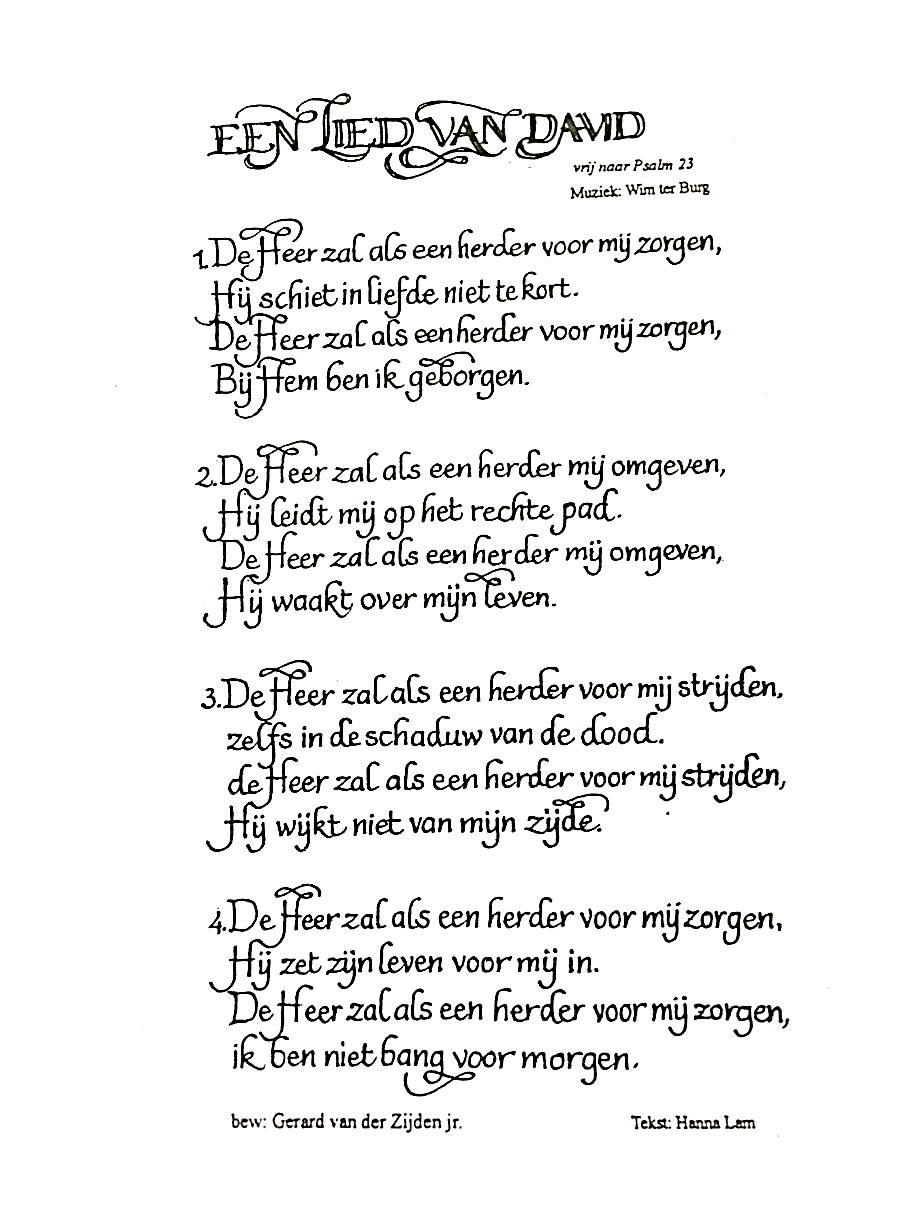 EEN LIED VAN DAVID
vrij naar Psalm 23
Muziek: Wim ter Burg
1. De Heer zal als een herder voor mij zorgen,
Hij schiet in liefde niet te kort.
De Heer zal als een herder voor mij zorgen,
Bij Hem ben ik geborgen.
2. De Heer zal als een herder mij omgeven,
Hij leidt mij op het rechte pad.
De Heer zal als een herder mij omgeven,
Hij waakt over mijn leven.
3. De Heer zal als een herder voor mij strijden,
zelfs in de schaduw van de dood.
de Heer zal als een herder voor mij strijden,
Hij wijkt niet van mijn zijde.
4. De Heer zal als een herder voor mij zorgen,
Hij zet zijn leven voor mij in.
De Heer zal als een herder voor mij zorgen,
ik ben niet bang voor morgen.
bew: Gerard van der Zijden jr.
Tekst: Hanna Lam